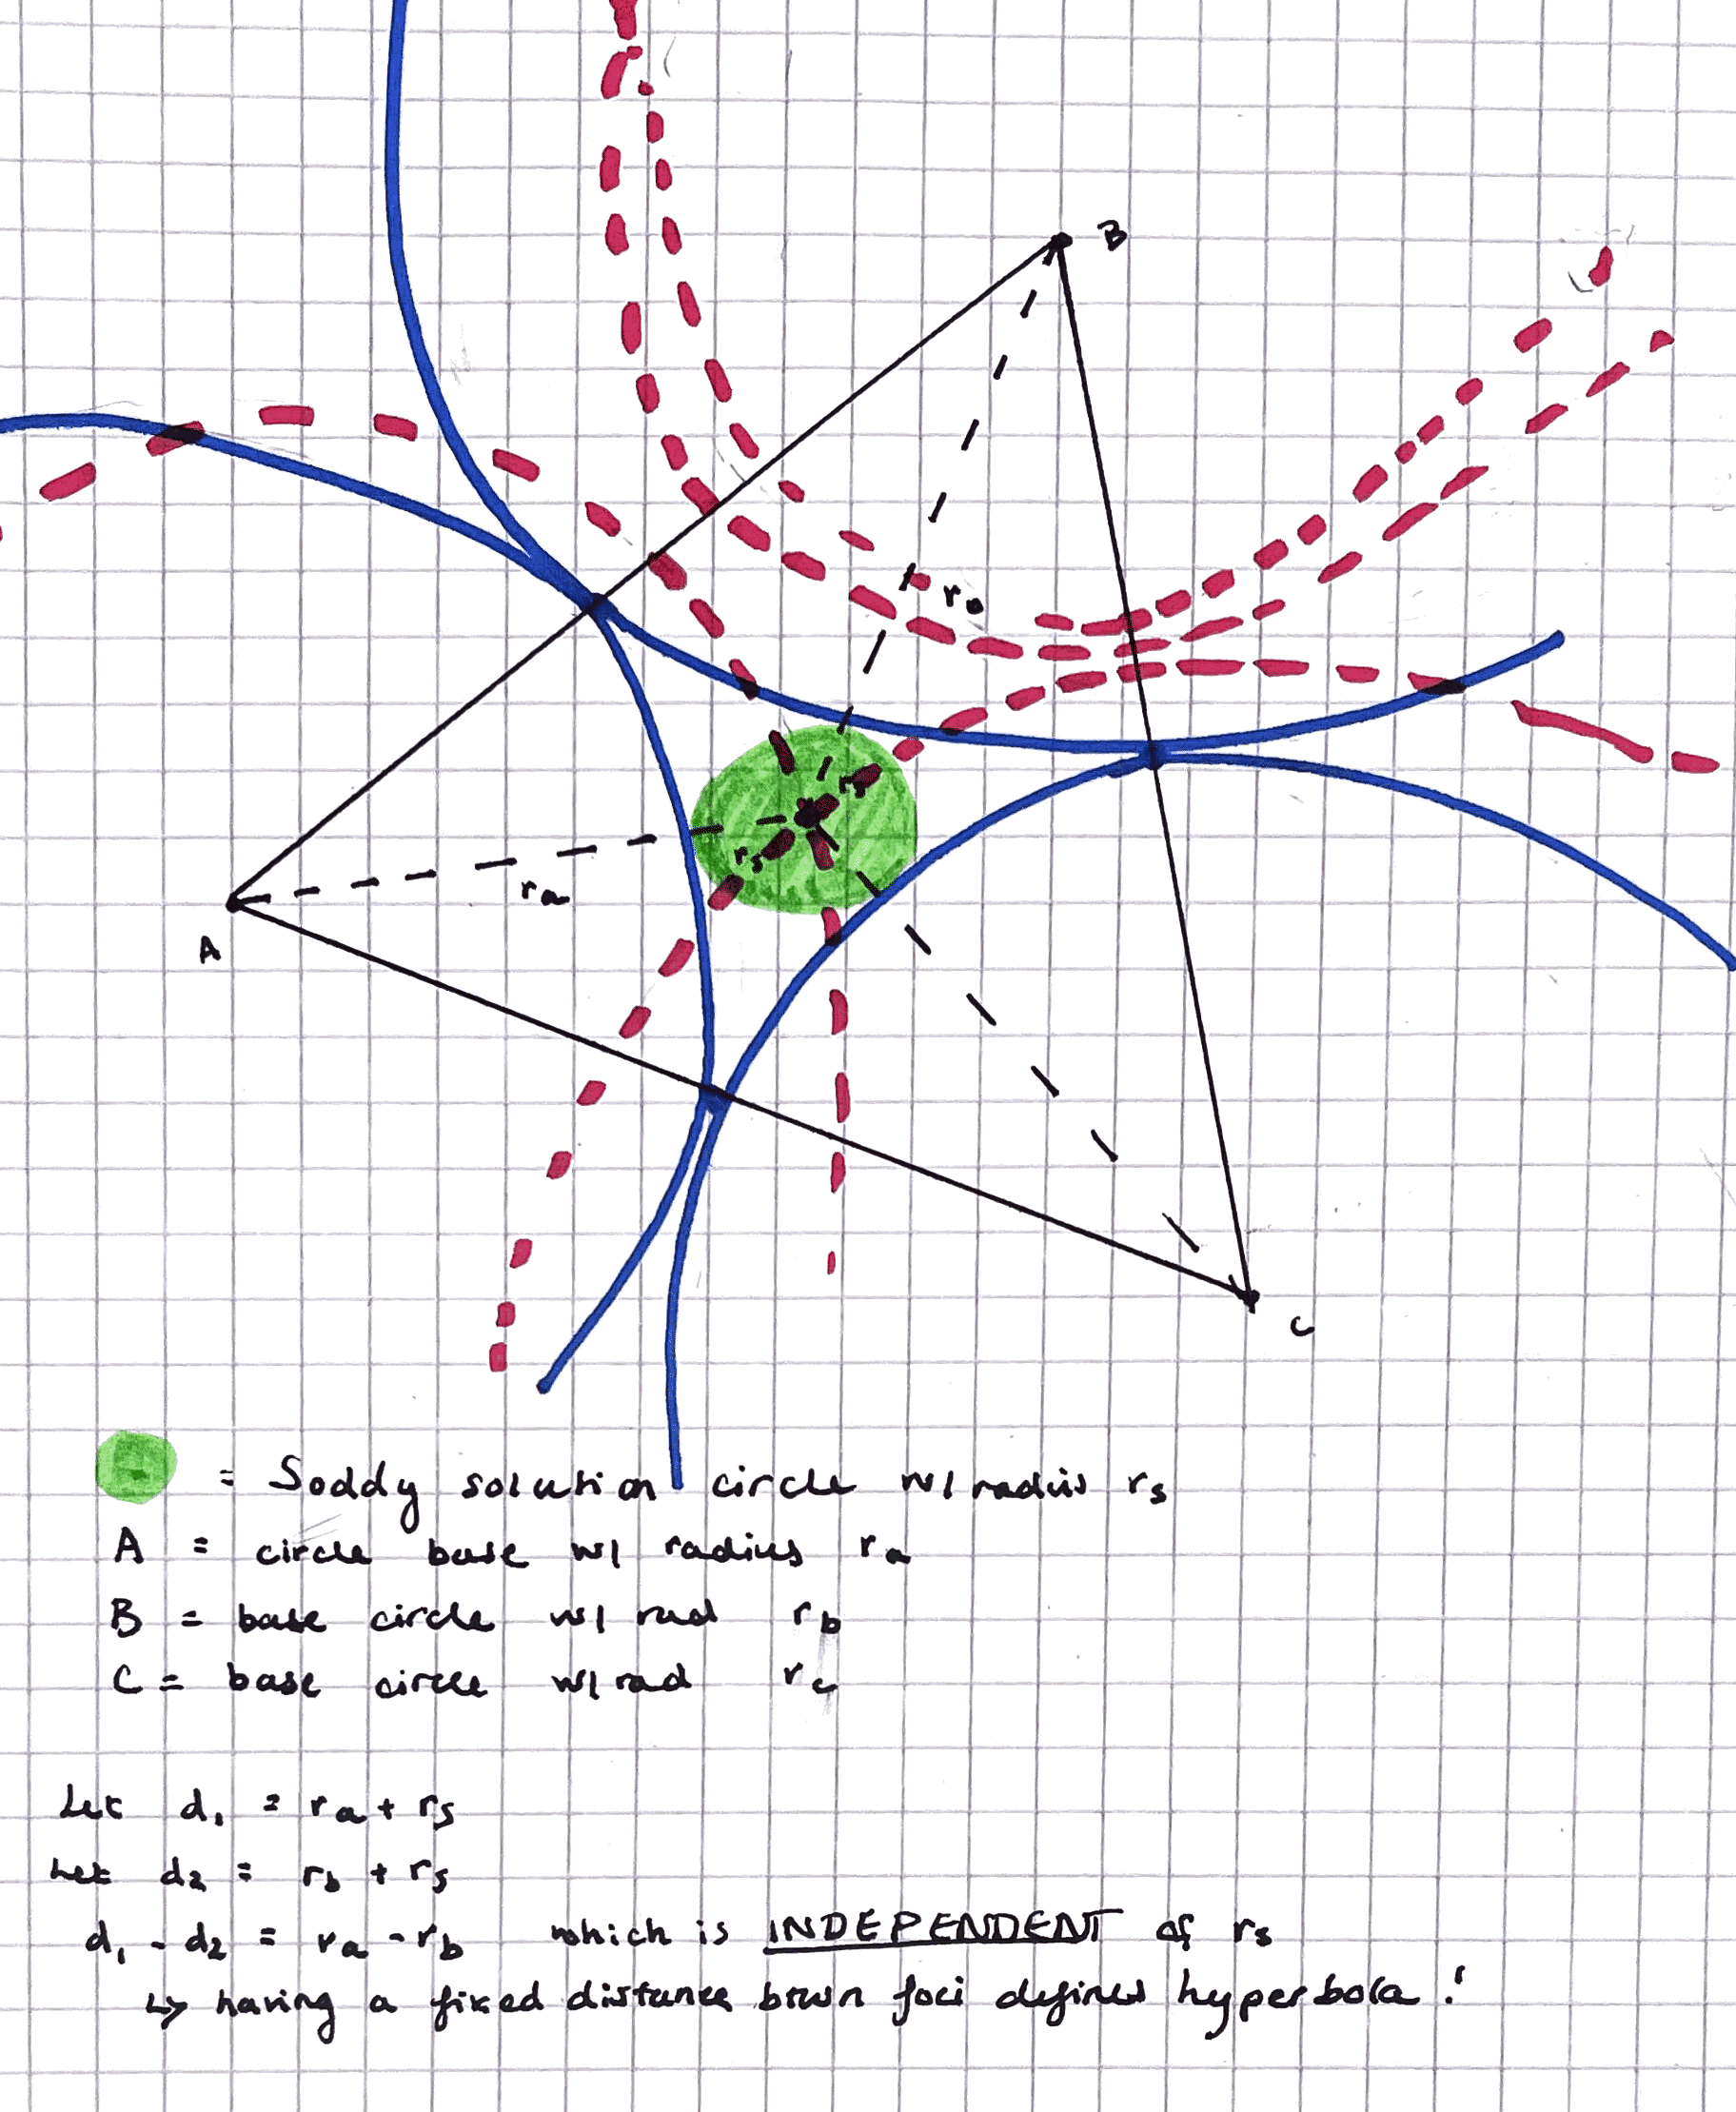 B
r₀
rs
rs
ra
A
C
= Soddy solution circle w/ radius rs
A = circle base w/ radius ra
B = base circle w/ rad rb
C = base circle w/ rad rc
Let d₁ = ra + rs
Let d₂ = rb + rs
d₁ - d₂ = ra - rb which is INDEPENDENT of rs
↳ having a fixed distance btwn foci defines hyperbola!